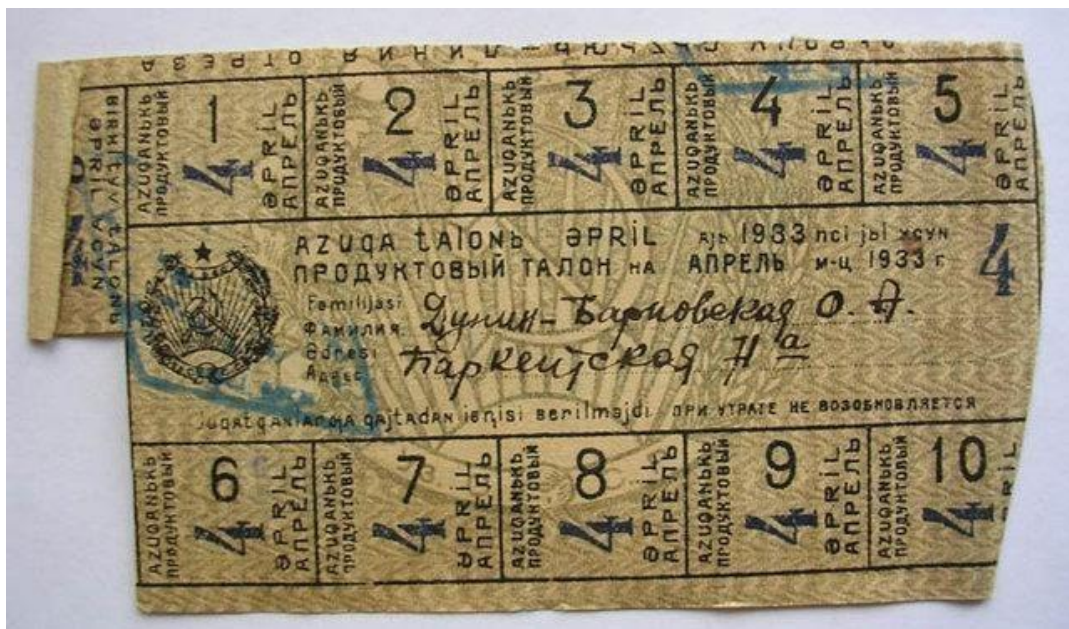 ОТРЕЗА
BIRKITYV TALONЬ
ƏPRIL YCYN
AZUQANЬKЬ ПРОДУКТОВЫЙ 1 4 ƏPRIL АПРЕЛЬ
AZUQANЬKЬ ПРОДУКТОВЫЙ 2 4 ƏPRIL АПРЕЛЬ
AZUQANЬKЬ ПРОДУКТОВЫЙ 3 4 ƏPRIL АПРЕЛЬ
AZUQANЬKЬ ПРОДУКТОВЫЙ 4 4 ƏPRIL АПРЕЛЬ
AZUQANЬKЬ ПРОДУКТОВЫЙ 5 4 ƏPRIL АПРЕЛЬ
AZUQA TALONЬ ƏPRIL AJЬ 1933 nci jЬl
ПРОДУКТОВЫЙ ТАЛОН НА АПРЕЛЬ М-Ц 1933 г 4
Familijasi
ФАМИЛИЯ Дунин-Барковская О. А.
Adresi
Адрес Паркентская
qajtadan berilmajdi ПРИ УТРАТЕ НЕ ВОЗОБНОВЛЯЕТСЯ
AZUQANЬKЬ ПРОДУКТОВЫЙ 6 4 ƏPRIL АПРЕЛЬ
AZUQANЬKЬ ПРОДУКТОВЫЙ 7 4 ƏPRIL АПРЕЛЬ
AZUQANЬKЬ ПРОДУКТОВЫЙ 8 4 ƏPRIL АПРЕЛЬ
AZUQANЬKЬ ПРОДУКТОВЫЙ 9 4 ƏPRIL АПРЕЛЬ
AZUQANЬKЬ ПРОДУКТОВЫЙ 10 4